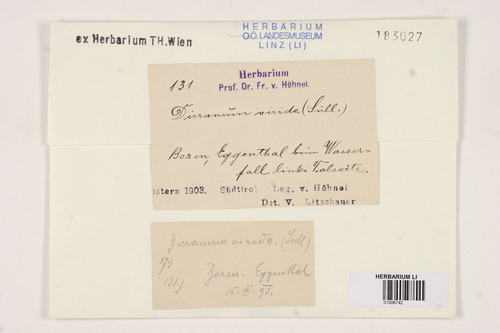 ex Herbarium TH.Wien
HERBARIUM
O.Ö. LANDESMUSEUM
LINZ (LI)
183027
131
Herbarium
Prof. Dr. Fr. v. Höhnel.
Dicranum viride (Sull.)
Bozen, Eggenthal beim Wasser-
fall links Talseite.
Ostern 1903. Südtirol Leg. v. Höhnel
Det. V. Litschauer
Dicranum viride. (Sull)
131.)
Bozen. Eggenthal
HERBARIUM LI
01006742